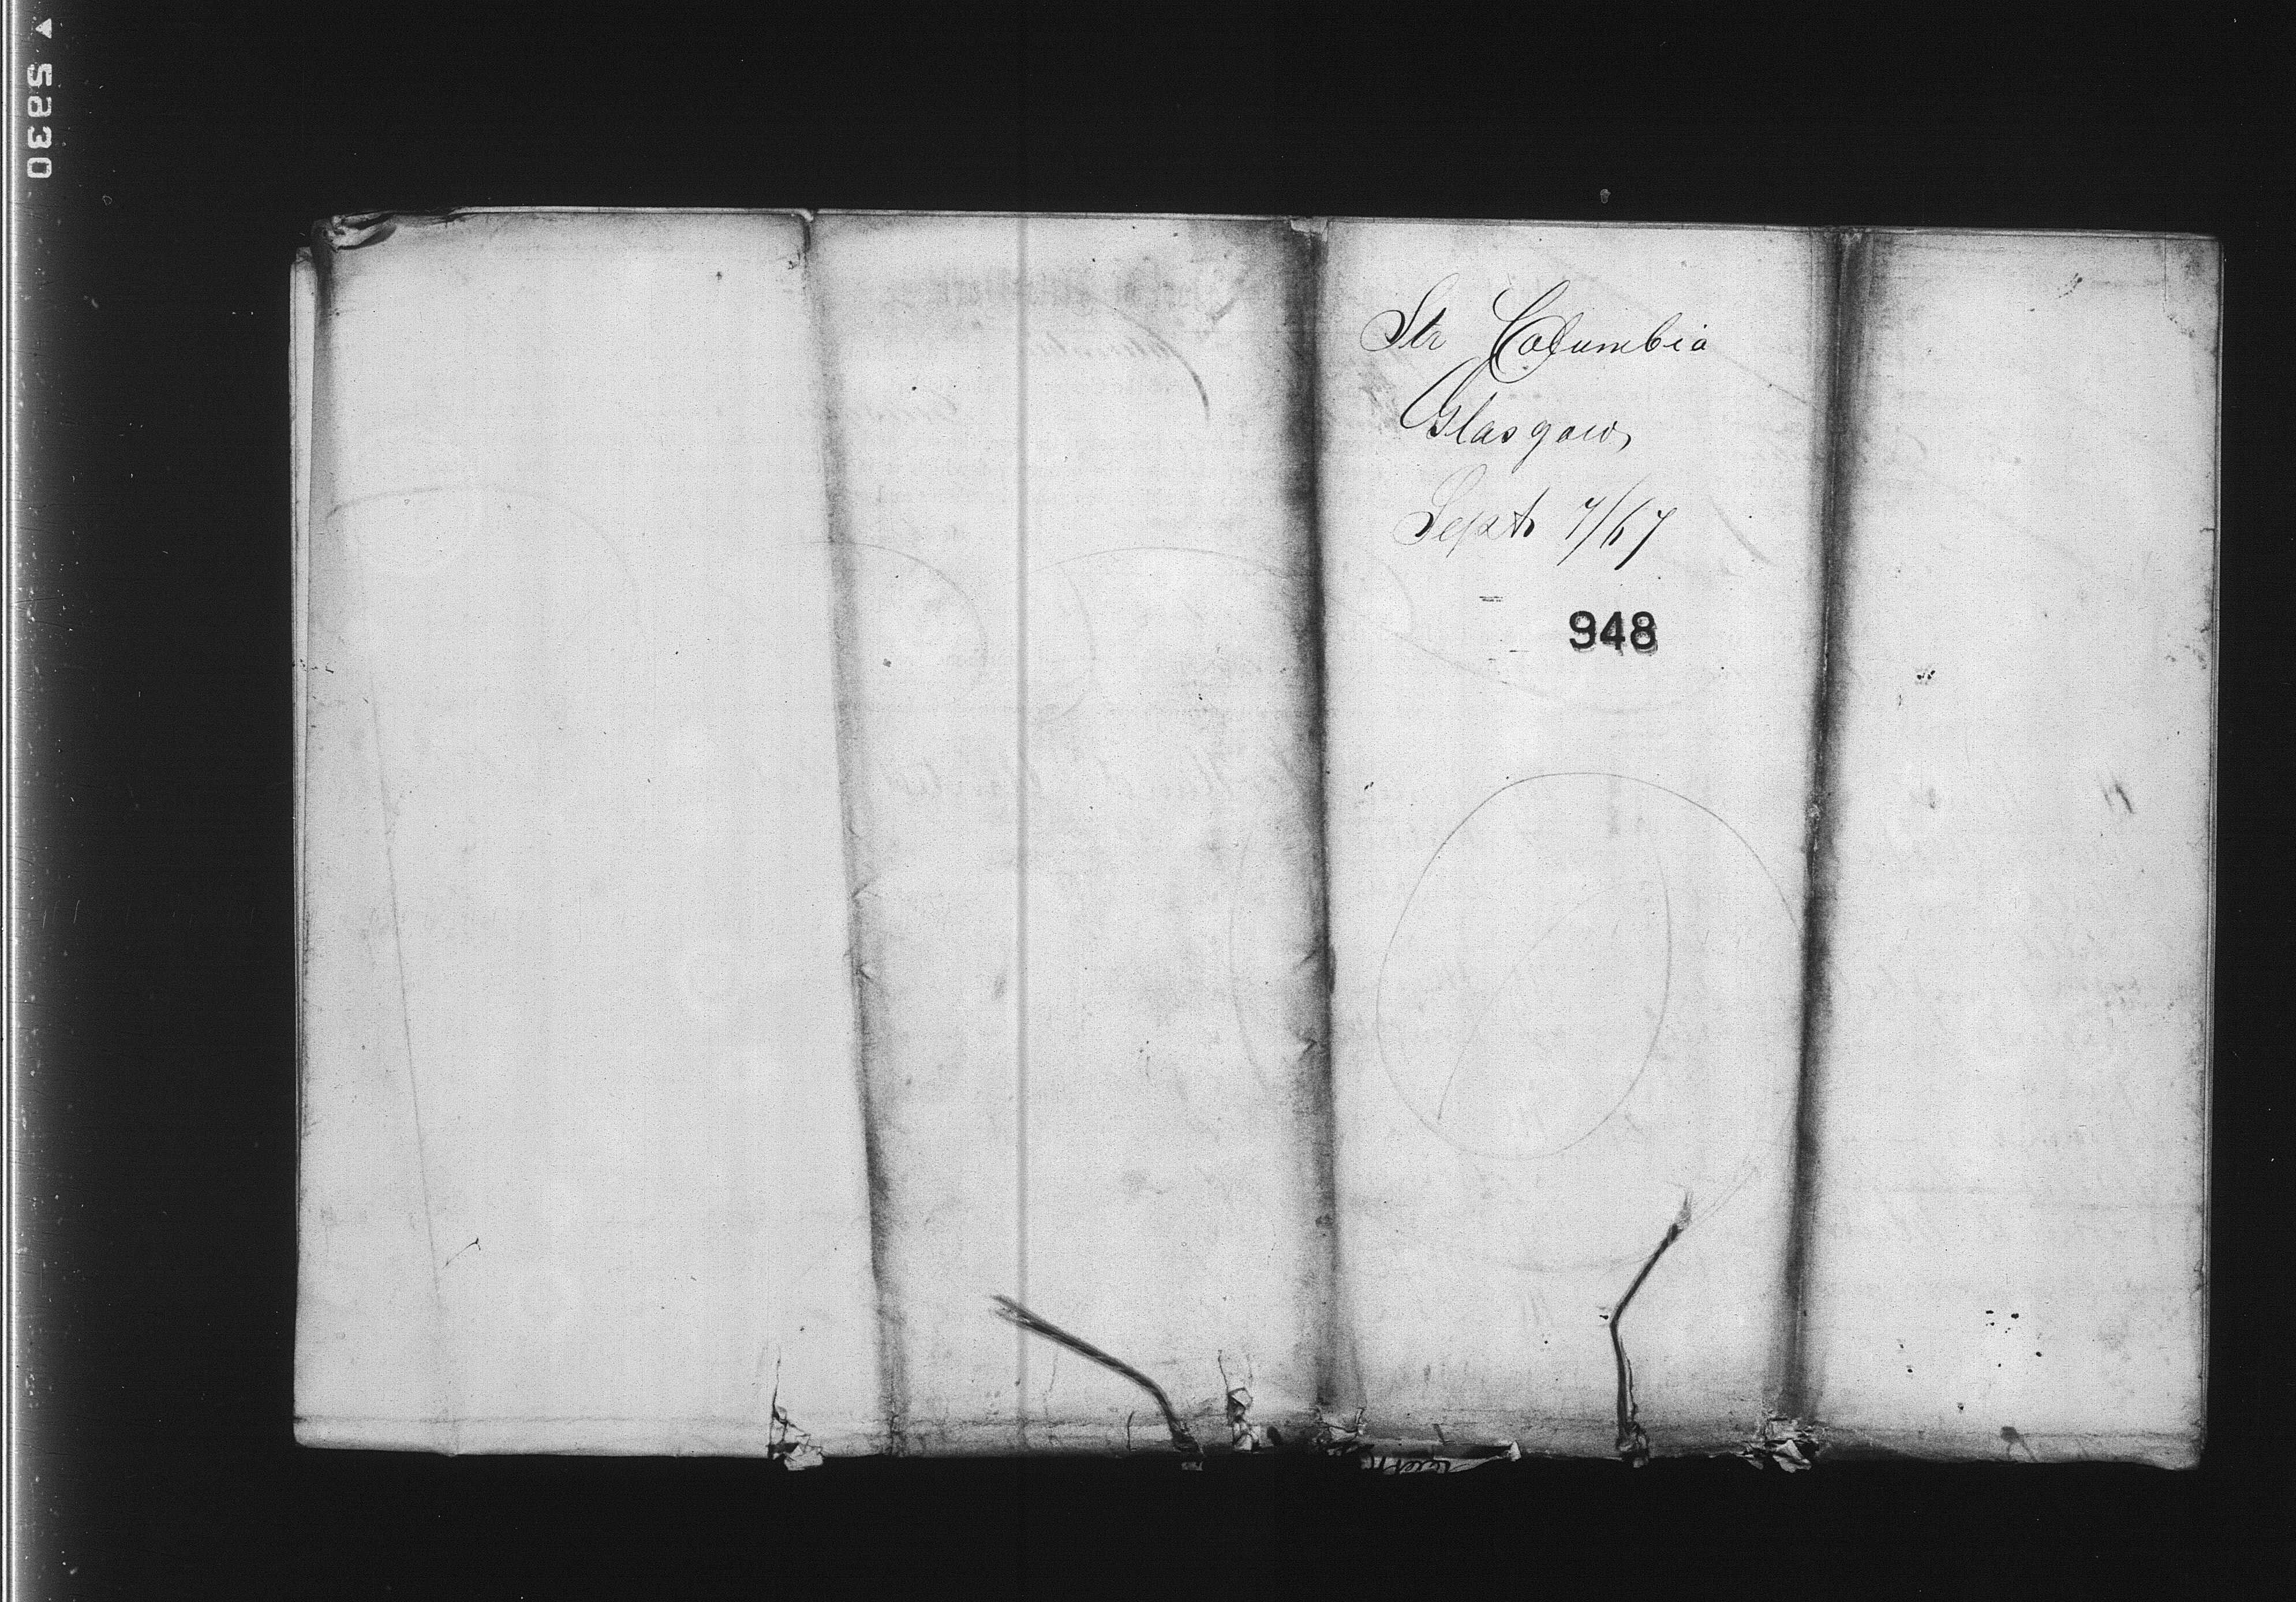 Str Columbia
Glasgow,
Sept 7/67
948